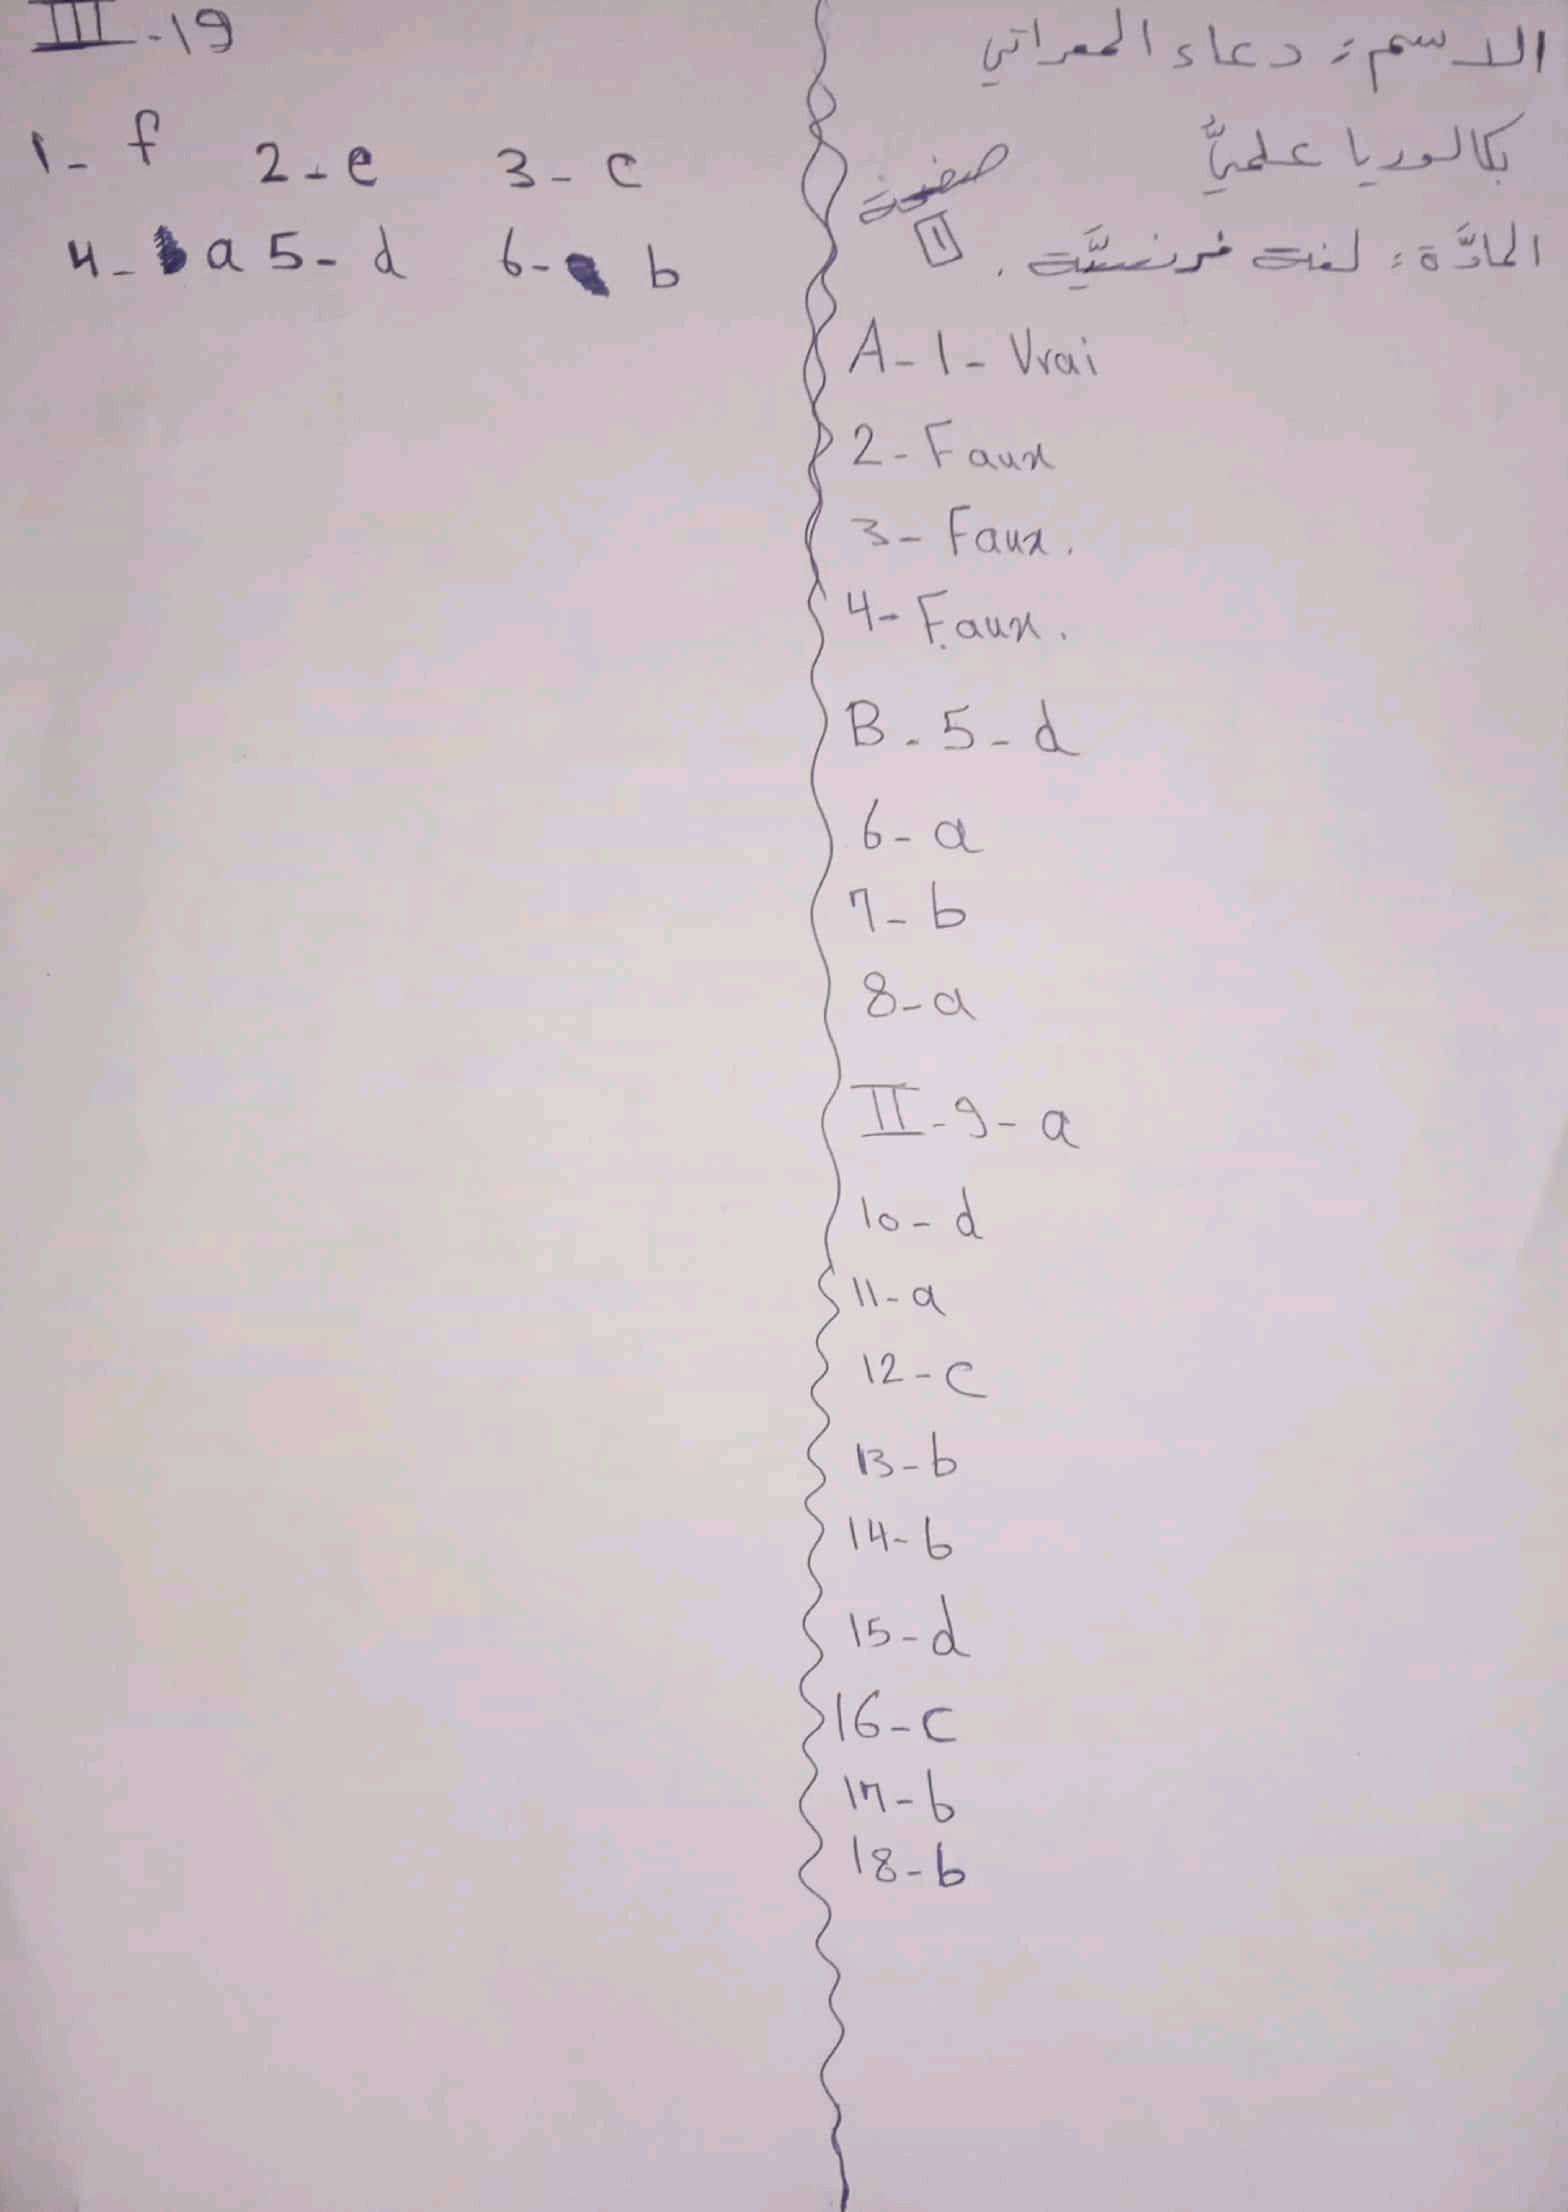 الاسم: دعاء المعراتي
بكالوريا علميّ
صفحة
المادَّة: لغة فرنسيَّة.
١
A-1- Vrai
2- Faux
3- Faux.
4- Faux.
B. 5- d
6- a
7- b
8- a
II-9- a
10- d
11- a
12- c
13- b
14- b
15- d
16- c
17- b
18- b
III-19
1- f 2-e 3- c
4- a 5- d 6- b